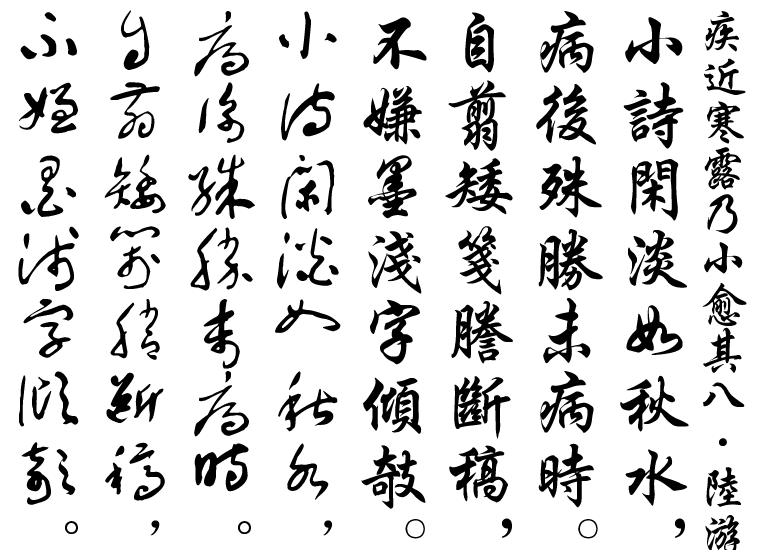 疾近寒露乃小愈其八·陸游
小詩閑淡如秋水，
病後殊勝未病時。
自翦矮箋謄斷稿，
不嫌墨淺字傾攲。
小詩閑淡如秋水，
病後殊勝未病時。
自翦矮箋謄斷稿，
不嫌墨淺字傾攲。